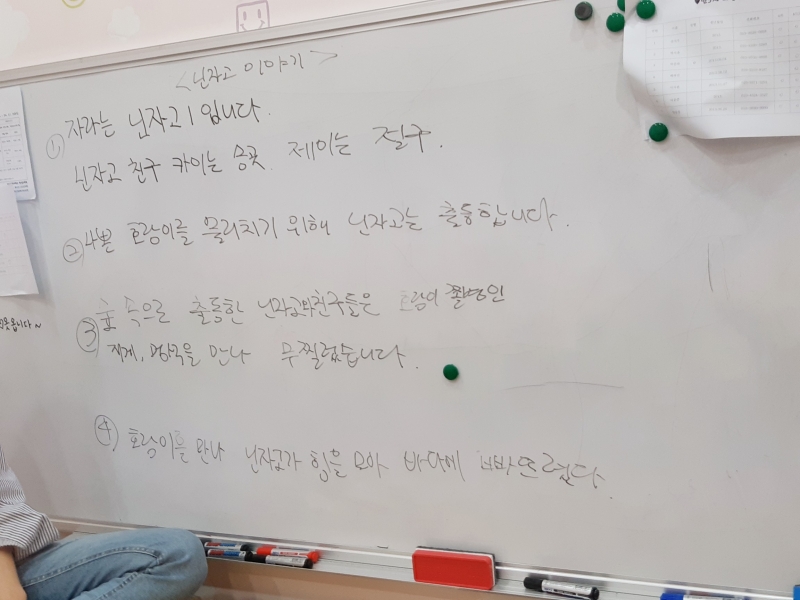 <닌자고 이야기>
① 자라는 닌자고1 입니다.
닌자고 친구 카이는 송곳. 제이는 절구.
② 나쁜 호랑이를 물리치기 위해 닌자고는 출동합니다.
③ 숲 속으로 출동한 닌자고와친구들은 호랑이 쫄병인
지게, 멍석을 만나 무찔렀습니다.
④ 호랑이를 만나 닌자고가 힘을 모아 바다에 빠뜨렸다.